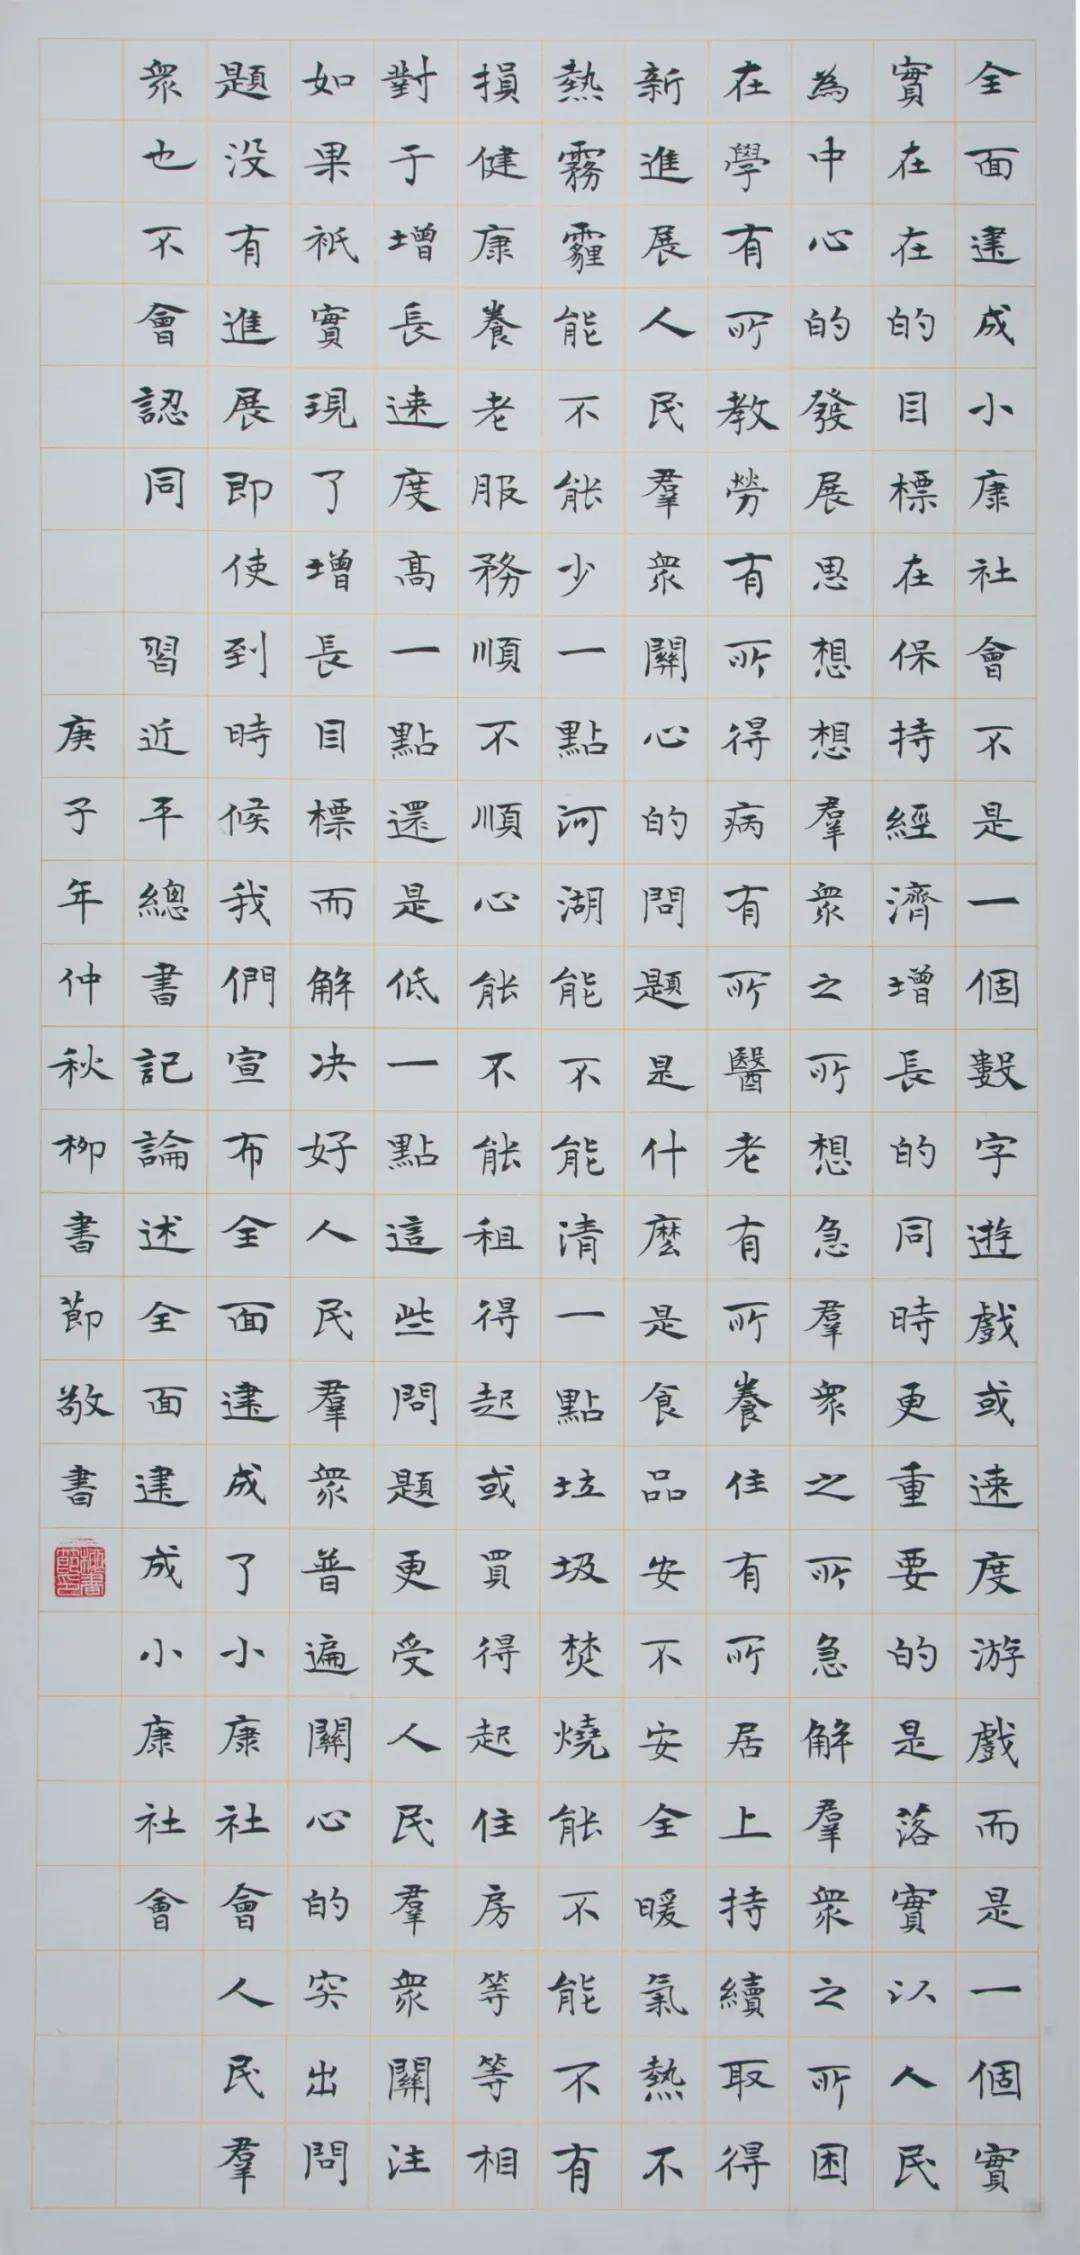 全面建成小康社會不是一個數字遊戲或速度游戲而是一個實
實在在的目標在保持經濟增長的同時更重要的是落實以人民
為中心的發展思想想羣衆之所想急羣衆之所急解羣衆之所困
在學有所教勞有所得病有所醫老有所養住有所居上持續取得
新進展人民羣衆關心的問題是什麼是食品安不安全暖氣熱不
熱霧霾能不能少一點河湖能不能清一點垃圾焚燒能不能不有
損健康養老服務順不順心能不能租得起或買得起住房等等相
對于增長速度高一點還是低一點這些問題更受人民羣衆關注
如果衹實現了增長目標而解决好人民羣衆普遍關心的突出問
題没有進展即使到時候我們宣布全面建成了小康社會人民羣
衆也不會認同 習近平總書記論述全面建成小康社會
庚子年仲秋柳書節敬書
柳書節印